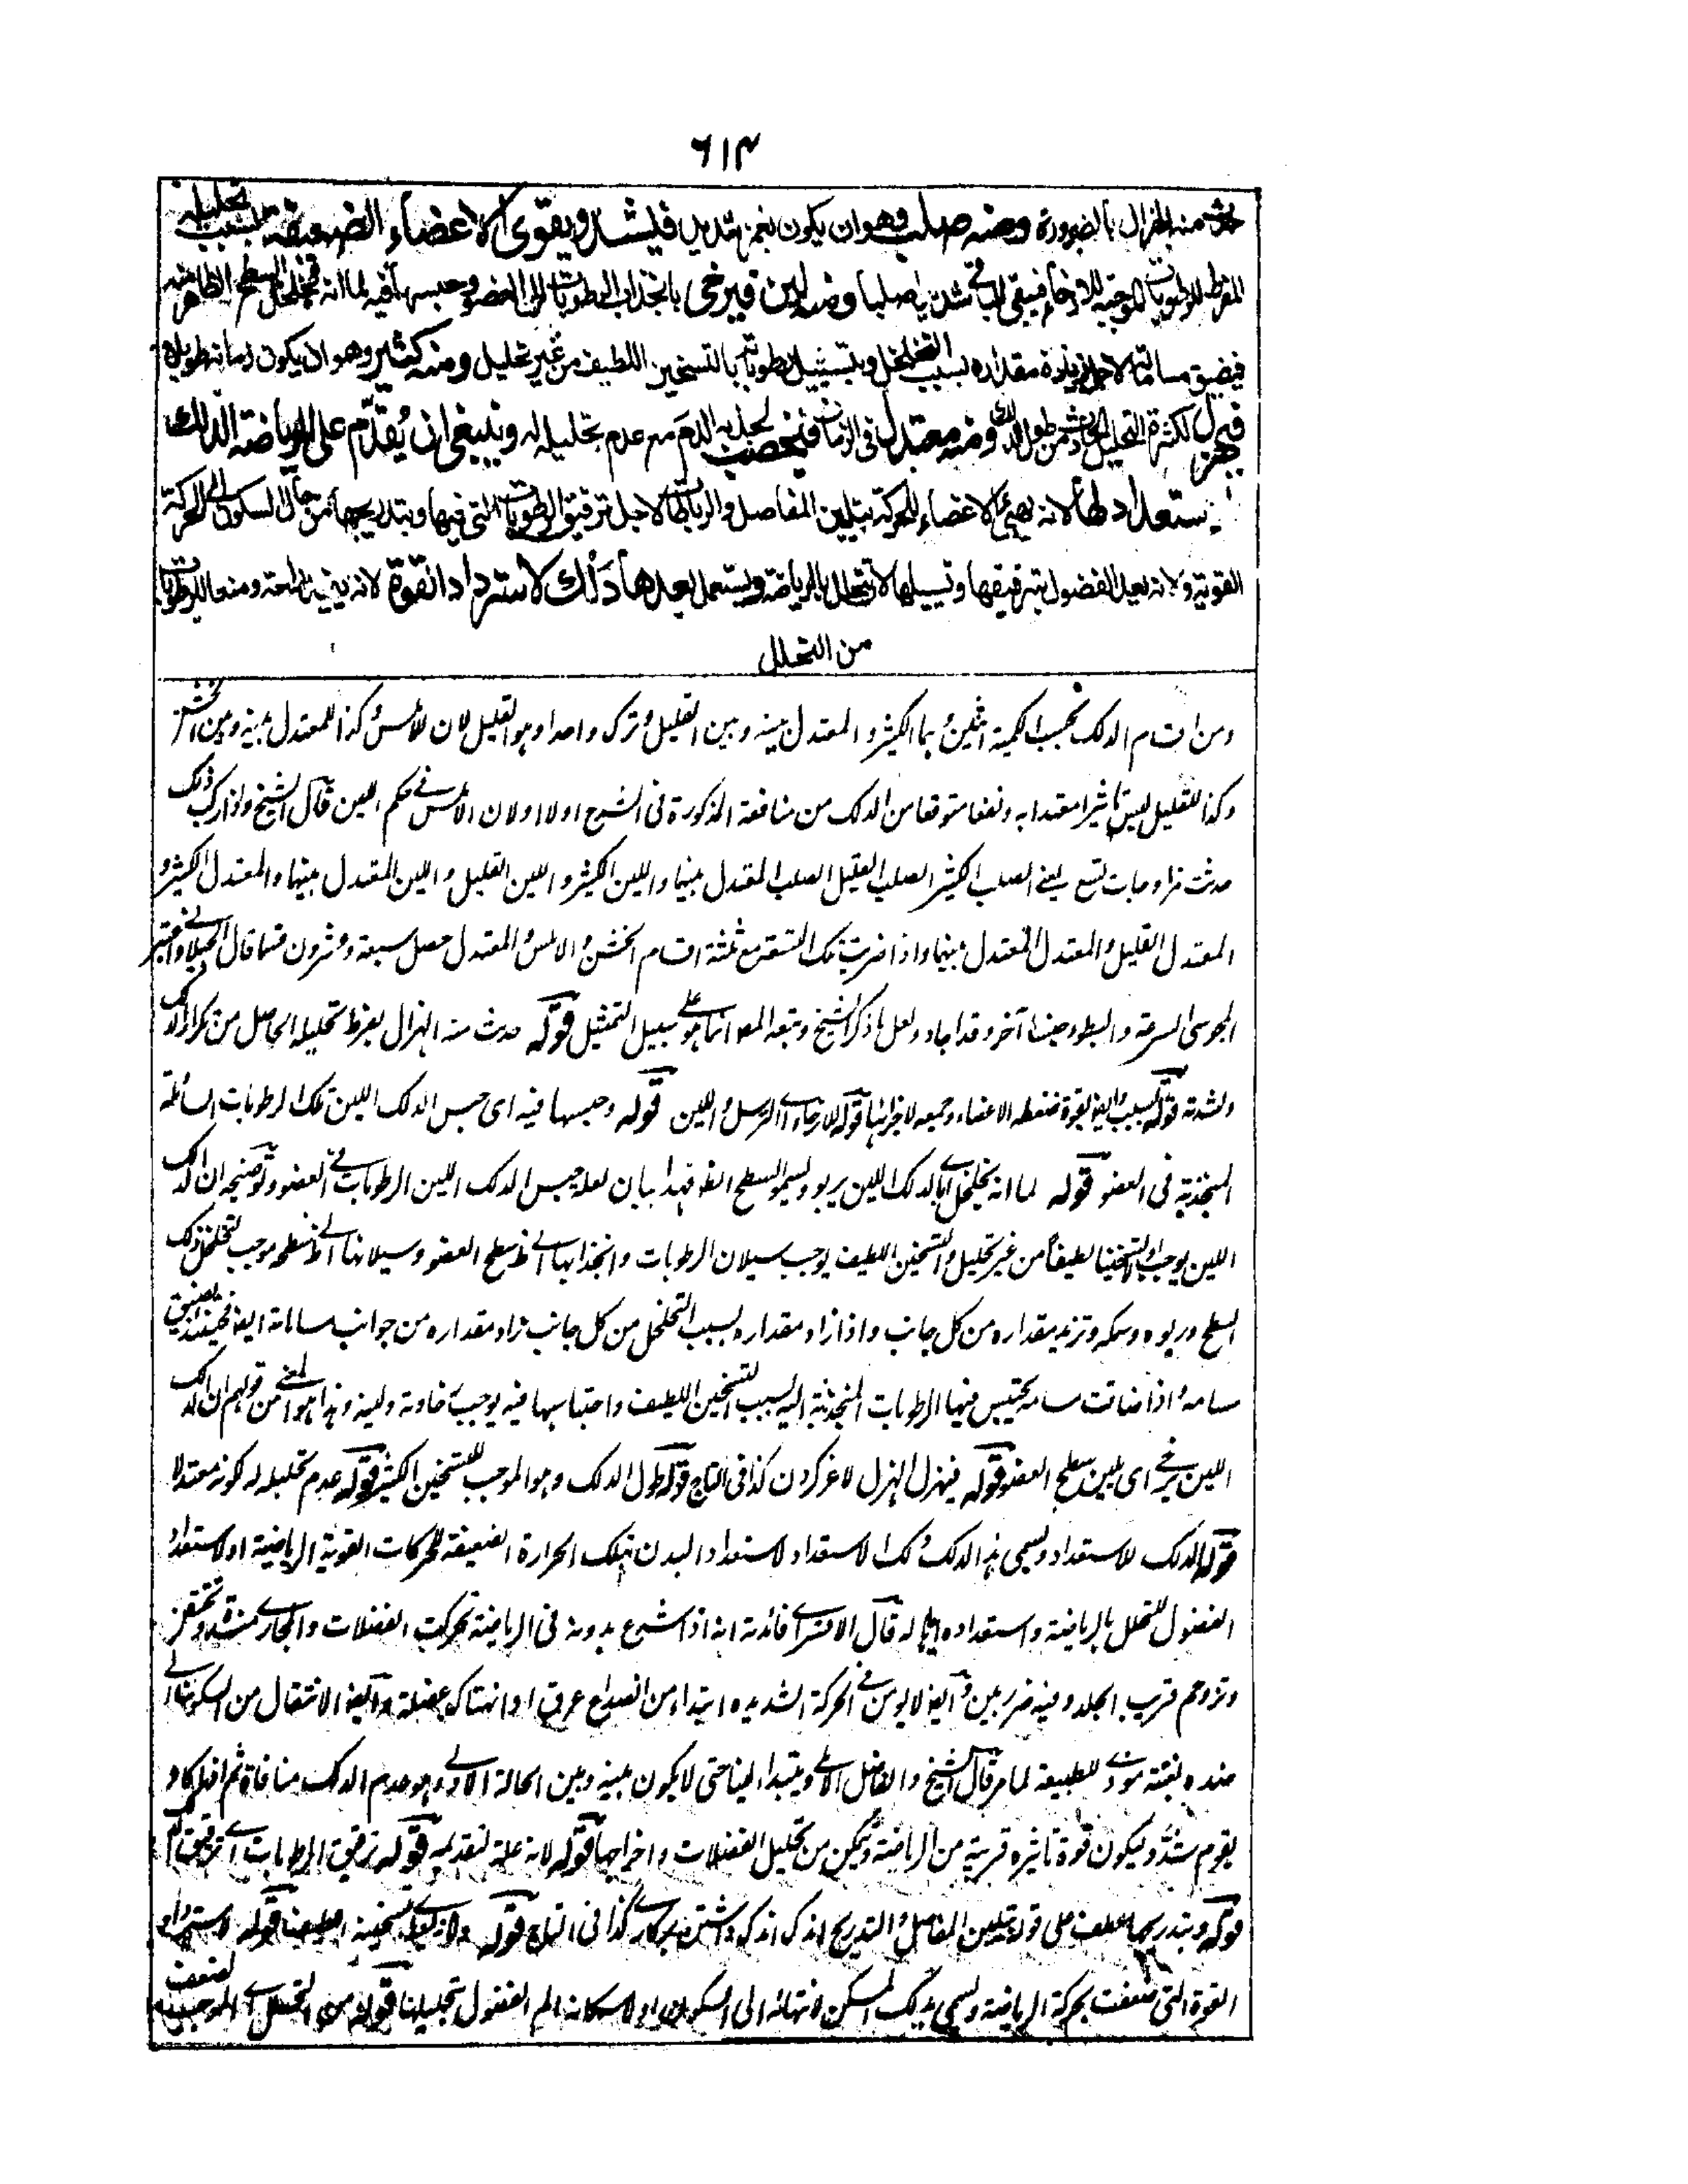 ٦١٣
حدث منه الهزال بالضرورة ومنه صلب وهو ان يكون بغمز شديد فيشد ويقوى الاعضاء الضعيفة بسبب تحليله
المفرط للرطوبات الموجبة للارخاء فيبقى الباقى شديدا صلبا ومنه لين فيرخى بانجذاب الرطوبات الى العضو وحبسها فيه لما انه تخلخل السطح الظاهر منه
فيضيق مسامه لاجل زيادة مقداره بسبب التخلخل وبتسييل رطوباته بالتسخين اللطيف من غير تحليل ومنه كثير وهو ان يكون زمانه طويلا
فيهزل لكثرة التحلل الحادث من طول الدلك ومنه معتدل فى الزمان فيخصب لجذبه الدم مع عدم تحليله له وينبغى ان يقدم على الرياضة الدلك
استعدادا لها لانه يهيئ الاعضاء للحركة بتليين المفاصل والرباطات لاجل ترقيق الرطوبات التى فيها وبتدريجها من حال السكون الى الحركة
القوية ولانه يعد الفضول بترقيقها وتسييلها لان تتحلل بالرياضة ويستعمل بعدها دلك لاسترداد القوة لانه يفيد راحة ومنعا للرطوبات
من التحلل
ومن اقسام الدلك بحسب الكمية اثنين وهما الكثير والمعتدل بينه وبين القليل وترك واحدا وهو القليل لان للاملس وكذا للمعتدل بينه وبين الخشن
وكذا للقليل ليس تاثيرا معتدا به ونفعا متوقعا من الدلك من منافعه المذكورة فى الشرح اولا اولان الاملس فى حكم اللين قال الشيخ واذا ركب ذلك
حدث مزاوجات تسع يعنى الصلب الكثير الصلب القليل الصلب المعتدل بينهما واللين الكثير واللين القليل واللين المعتدل بينهما والمعتدل الكثير و
المعتدل القليل والمعتدل المعتدل بينهما واذا ضربت تلك التسعة مع ثلثة اقسام الخشن والاملس والمعتدل حصل سبعة وعشرون قسما قال الجيلانى واعتبر
المجوسى السرعة والبطوء صنفا آخر وقد اجاد ولعل ما ذكر الشيخ وتبعه المصـ انما هو على سبيل التمثيل قوله حدث منه الهزال بفرط تحليله الحاصل من تكرار الدلك
ولشدته قوله بسبب وايضا لقوة ضغطه الاعضاء وجمعه لاجزائها قوله للارخاء اى الترهل واللين قوله وحبسها فيه اى حبس الدلك اللين تلك الرطوبات السائلة
المنجذبة فى العضو قوله لما انه تخلخل اى بالدلك اللين يربو ويسمو السطح الظـ فهذا بيان لعلة حبس الدلك اللين الرطوبات فى العضو وتوضيحه ان الدلك
اللين يوجب اولا تسخينا لطيفا من غير تحليل والتسخين اللطيف يوجب سيلان الرطوبات وانجذابها الى ظـ سطح العضو وسيلانها الى ظـ سطحه موجب لتخلخل ذلك
السطح وربوه وسمكه وتزيد مقداره من كل جانب واذا زاد مقداره بسبب التخلخل من كل جانب زاد مقداره من جوانب مساماته ايضا فحينئذ تضيق
مسامه واذا ضاقت مسامه تحتبس فيها الرطوبات المنجذبة اليه بسبب التسخين اللطيف واحتباسها فيه يوجب رخاوته ولينه وهذا هو المعنى من قولهم ان الدلك
اللين يرخى اى يلين سطح العضو قوله فيهزل الهزل لاغر كردن كذا فى التاج قوله طول الدلك وهو الموجب للتسخين الكثير قوله عدم تحليله له كونه معتدلا
قوله الدلك للاستعداد ويسمى هذا الدلك دلك الاستعداد لاستعداد البدن بتلك الحرارة الضعيفة للحركات القوية الرياضية اولاستعداد
الفضول للتحلل بالرياضة واستعداده اياها له قال الاقسرائى فائدته انه اذا شرع بدونه فى الرياضة تحركت الفضلات والمجارى منسدة فتحتقن
وتزدحم قريب الجلد وفيه ضرر بين وايضا لا يومن فى الحركة الشديدة ابتداء من انصداع عرق او انهتاك عضلة وايضا الانتقال من السكون الى
ضده بغتة موذ للطبيعة لما مر قال الشيخ والفاضل الآملى ويبتدا لينا حتى لا يكون بينه وبين الحالة الاولى وهو عدم الدلك منافاة ثم اذا كاد
يقوم شدد ليكون قوة تاثيره قريبة من الرياضة ويمكن من تحليل الفضلات واخراجها قوله لانه علة لتقديمه قوله ترقيق الرطوبات اى ترقيق
قوله وبتدريجها عطف على قوله بتليين المفاصل والتدريج اندك اندك داشتن بركارى كذا فى التاج قوله ولانه يعد تسخينه لطيفا قوله لاسترداد
القوة التى ضعفت بحركة الرياضة ويسمى بدلك المسكن لانتهائه الى السكون او لاسكانه الم الفضول بتحليلها قوله من التحلل اى الموجب لضعف